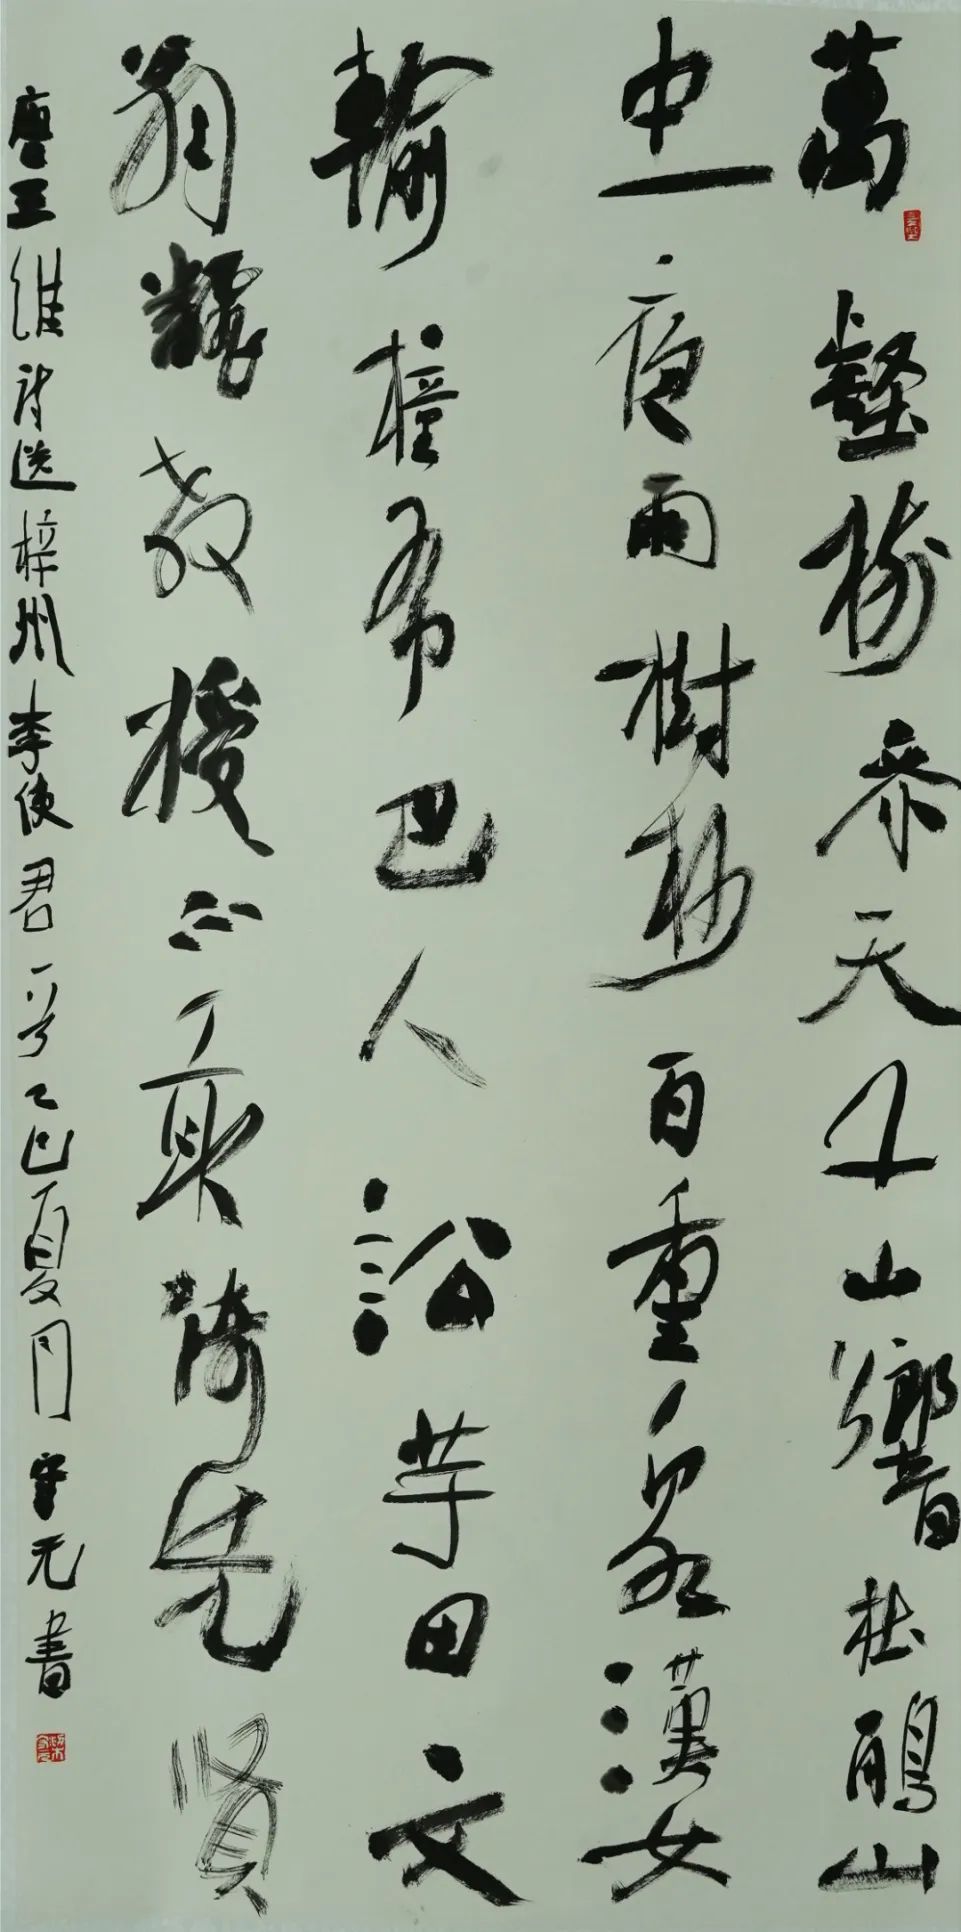 萬壑樹參天千山響杜鵑山
中一夜雨樹杪百重泉漢女
輸橦布巴人訟芋田文
翁翻教授不敢倚先賢
唐王維詩送梓州李使君一首乙巳夏月守元書